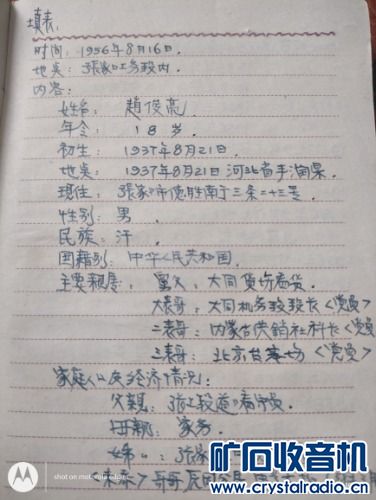 填表:
时间: 1956年8月16日.
地点: 張家口务段内.
内容:
姓名: 趙俊亮
年令: 18岁.
初生: 1937年8月21日.
地点: 1937年8月21日 河北省
現住: 張家口市德胜南于三条二十三号
性别: 男.
民族: 汗.
国籍别: 中华人民共和国.
主要親唐: 大同貨伤
大表哥: 大同机务段段长<党员>
二表哥: 内蒙古供销社科长<党员>
三表哥: 北京 <党员>
家庭人口及经济情况:
父親:
母親: 家务.
張家
哥哥
矿石收音机
www.crystalradio.cn
shot on motorola